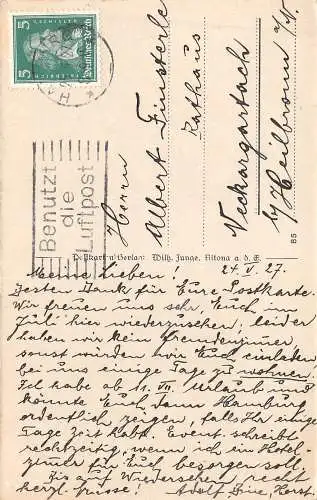 5 Deutsches Reich 5
Benutzt
die
Luftpost
Herrn
Albert Finsterle
Rathaus
Neckargartach
b/Heilbronn a/N.
85
Postkarten-Verlag Wilh. Junge, Altona a. d. E.
24. V. 27.
Meine Lieben!
Besten Dank für Eure Postkarte.
Wir freuen uns sehr, Euch im
Juli hier wiederzusehen; leider
haben wir kein Fremdenzimmer
sonst würden wir Euch einladen
bei uns einige Tage zu wohnen.
Ich habe ab 11. VII. Urlaub und
könnte Euch dann Hamburg
ordentlich zeigen, falls Ihr einige
Tage Zeit habt. Event. schreibt
rechtzeitig, wenn ich ein Hotel-
zimmer für Euch besorgen soll.
Bis auf Wiedersehen! recht
herzl. Grüsse! Adolf, Horst.